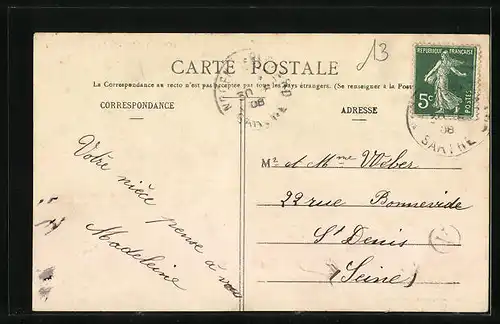 13
CARTE POSTALE
La Correspondance au recto n'est pas acceptée par tous les pays étrangers. (Se renseigner à la Poste
CORRESPONDANCE
ADRESSE
RÉPUBLIQUE FRANÇAISE
5c
POSTES
30
08
SARTHE
08
SARTHE
Votre nièce pense à vous
Madeleine
Mr et Mme Weber
22 rue Bonnevide
St Denis
(Seine)